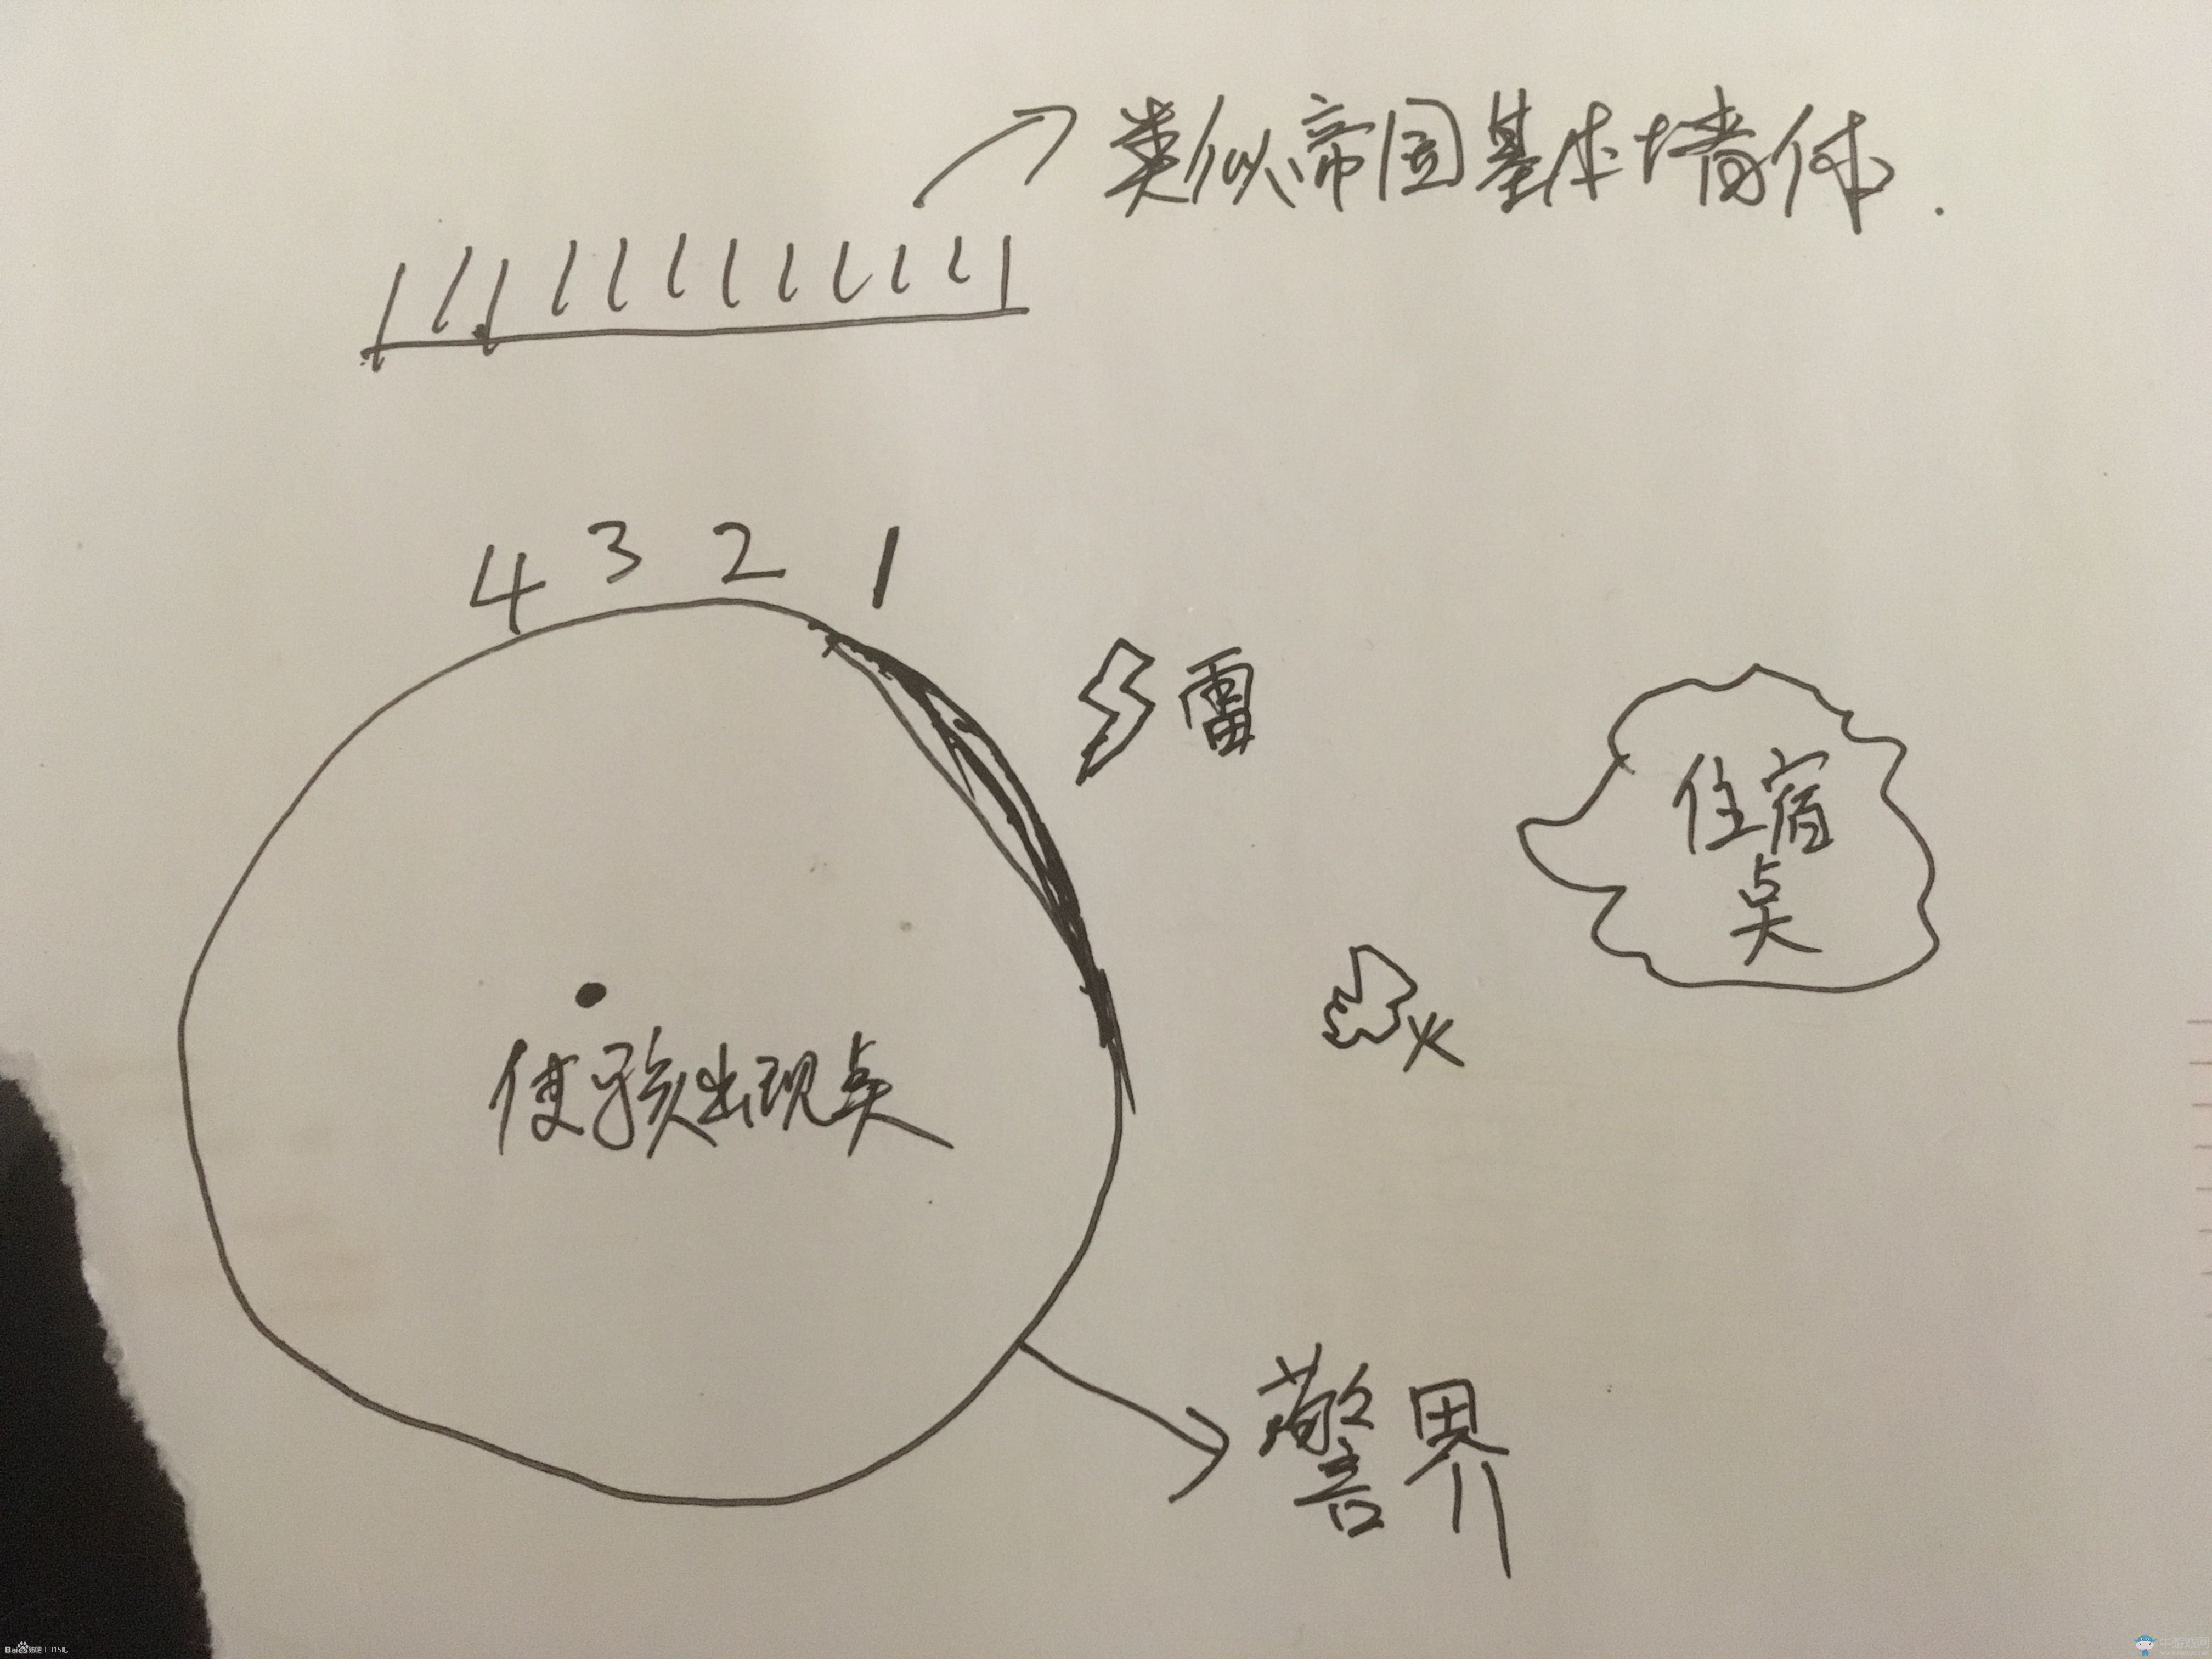 类似帝国基本墙体.
4 3 2 1
雷
住宿
点
火
使骇出现点
警界
Bai贴吧|ff15吧
牛游戏网